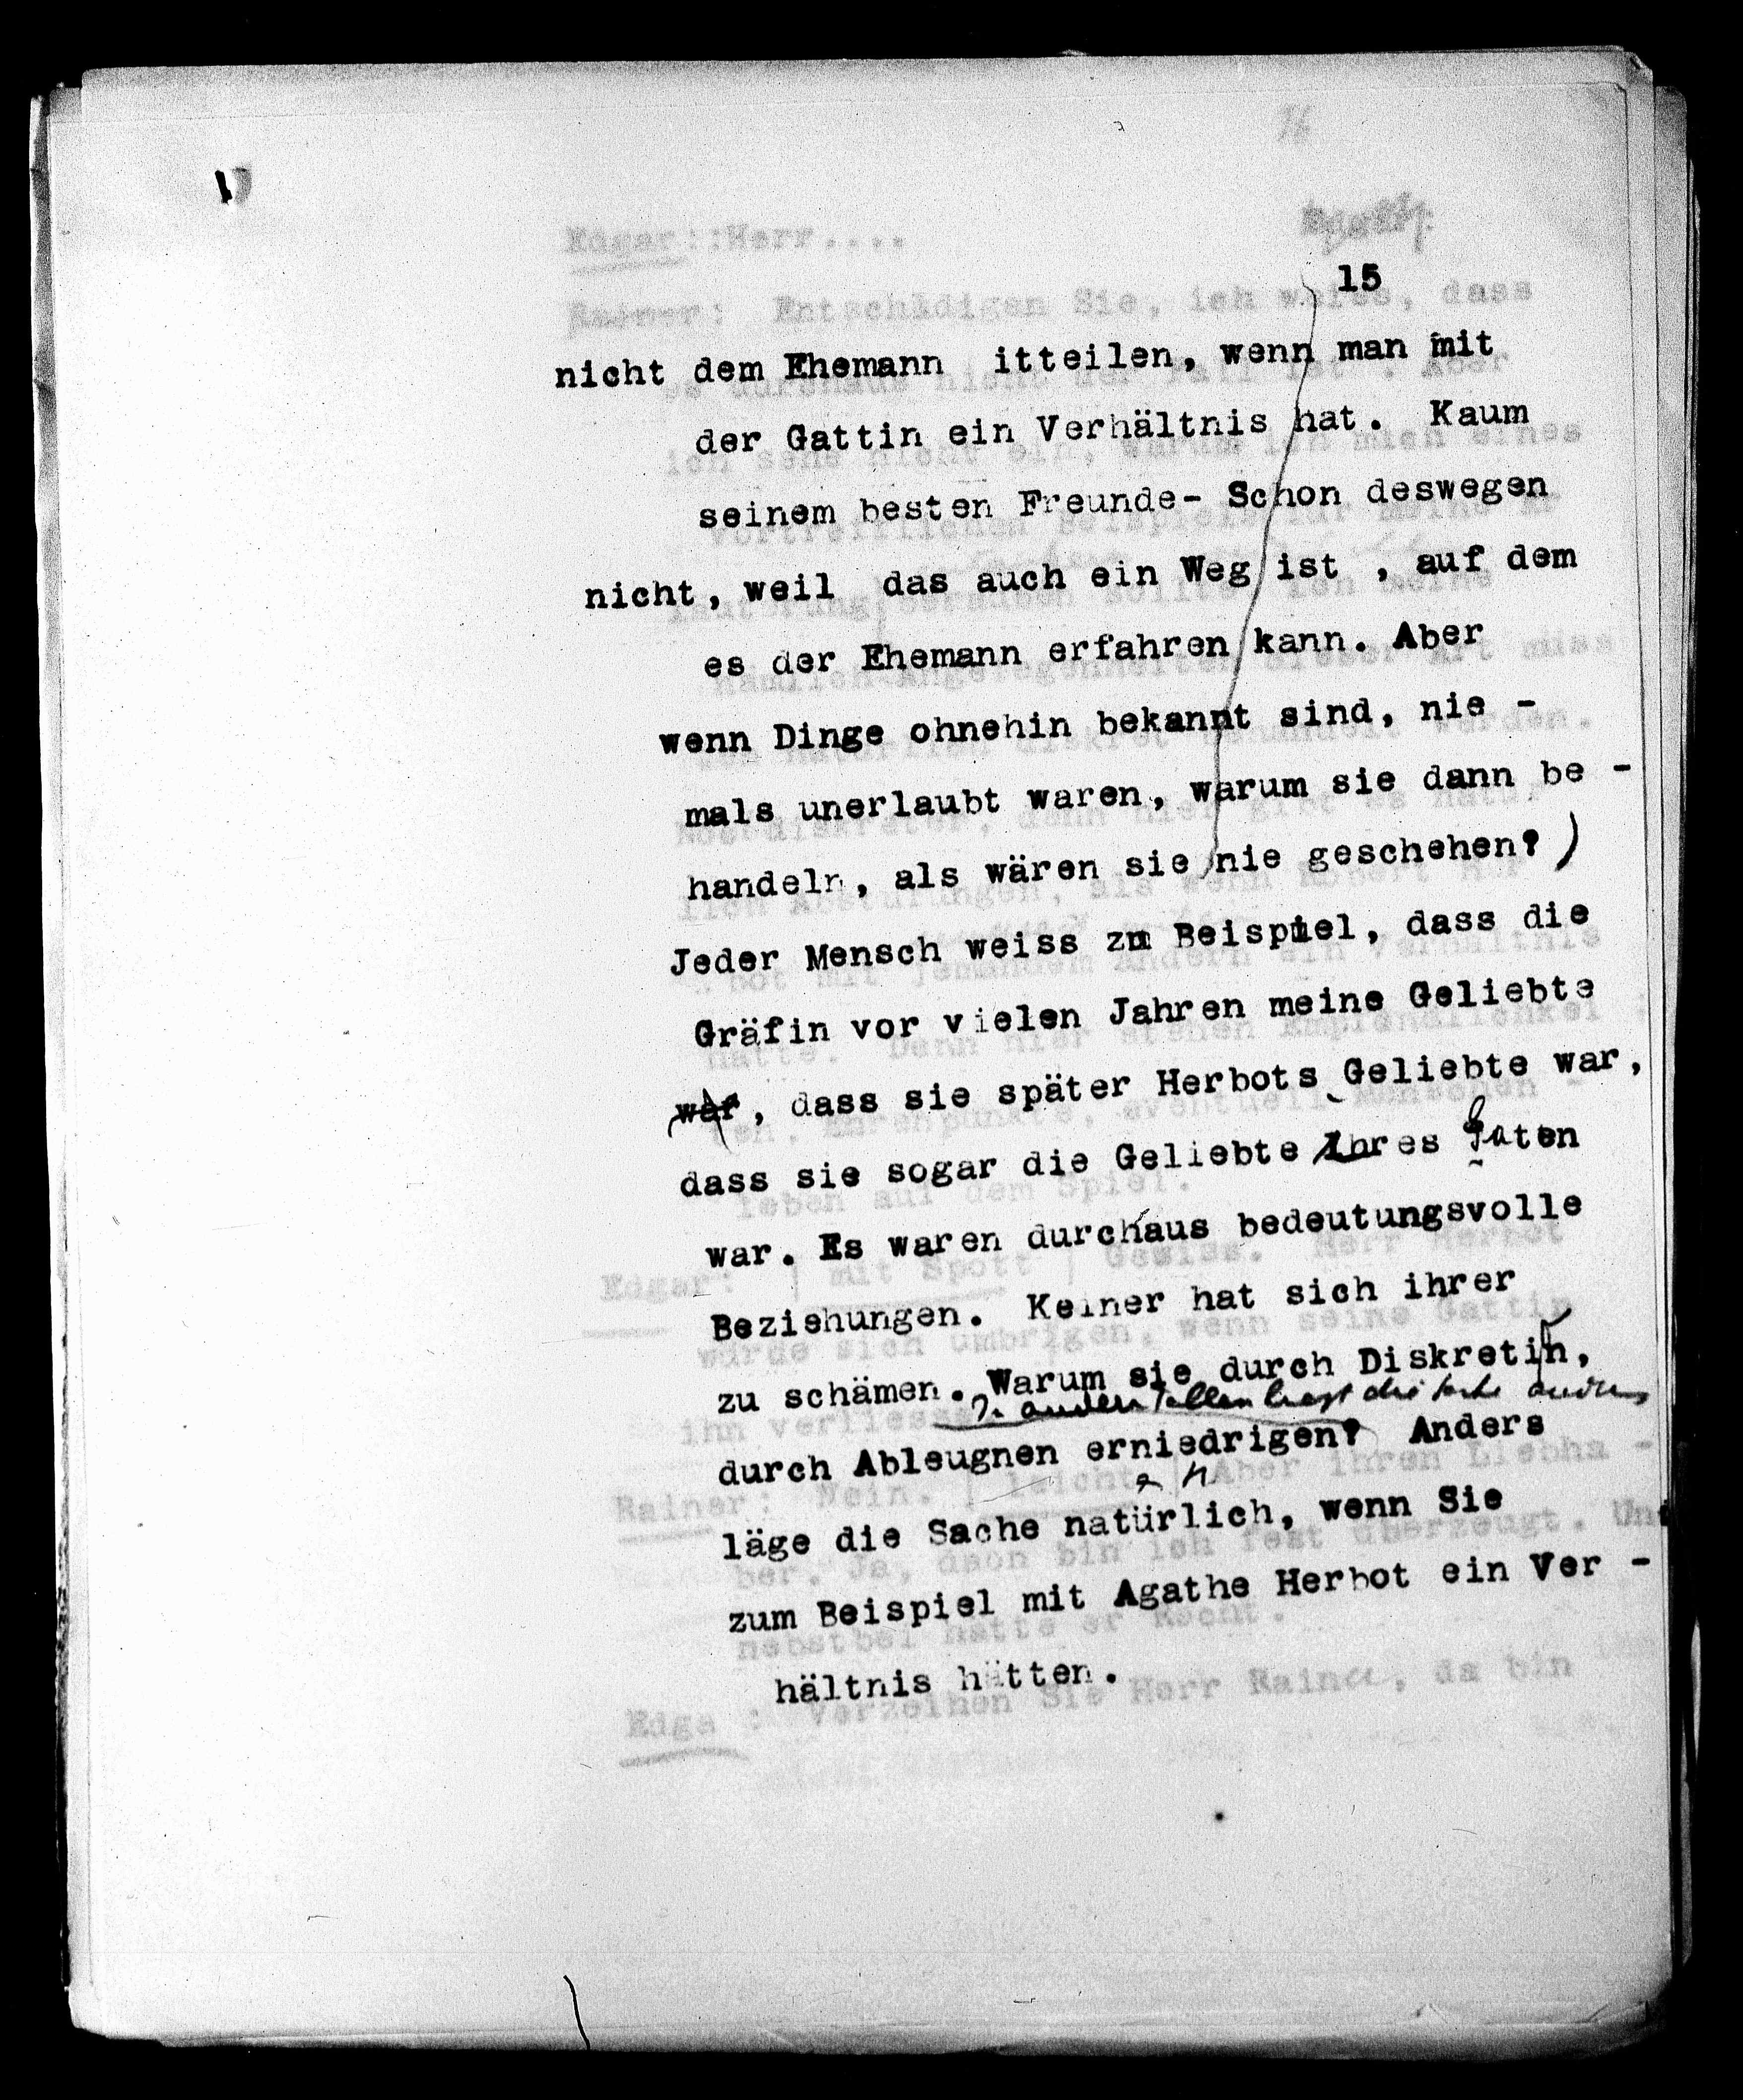 15
nicht dem Ehemann itteilen, wenn man mit
der Gattin ein Verhältnis hat. Kaum
seinem besten Freunde- Schon deswegen
nicht, weil das auch ein Weg ist , auf dem
es der Ehemann erfahren kann. Aber
wenn Dinge ohnehin bekannt sind, nie -
mals unerlaubt waren, warum sie dann be -
handeln, als wären sie nie geschehen?)
Jeder Mensch weiss zm Beispiel, dass die
Gräfin vor vielen Jahren meine Geliebte
war, dass sie später Herbots Geliebte war,
dass sie sogar die Geliebte ihres Gaten
war. Es waren durchaus bedeutungsvolle
Beziehungen. Keiner hat sich ihrer
zu schämen. Warum sie durch Diskretin,
In andern Fällen liegt die Sache anders
durch Ableugnen erniedrigen? Anders
läge die Sache natürlich, wenn Sie
zum Beispiel mit Agathe Herbot ein Ver -
hältnis hätten.